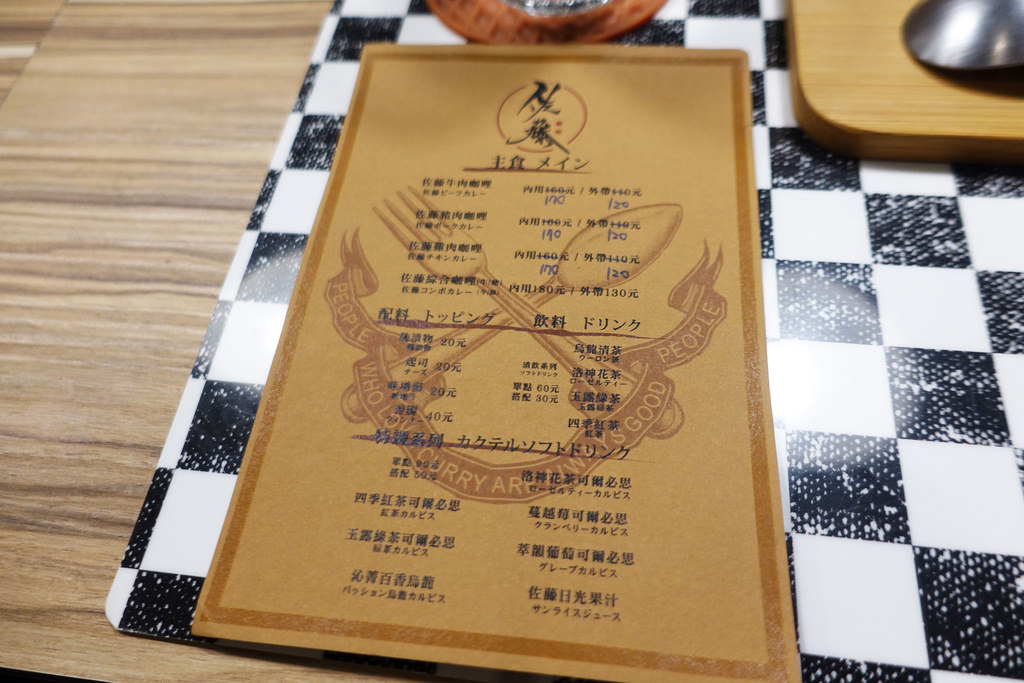 佐藤
主食 メイン
佐藤牛肉咖哩 內用160元 / 外帶110元
佐藤ビーフカレー 170 120
佐藤豬肉咖哩 內用160元 / 外帶110元
佐藤ポークカレー 170 120
佐藤雞肉咖哩 內用160元 / 外帶110元
佐藤チキンカレー 170 120
佐藤綜合咖哩(牛/豬) 內用180元 / 外帶130元
佐藤コンボカレー(牛/豚)
配料 トッピング 飲料 ドリンク
漬物 20元
起司 20元
チーズ
20元
40元
ウインナー
清飲系列
ソフトドリンク
單點 60元
搭配 30元
烏龍清茶
ウーロン茶
洛神花茶
ローゼルティー
玉露綠茶
玉露緑茶
四季紅茶
紅茶
特調系列 カクテルソフトドリンク
單點 90元
搭配 50元
洛神花茶可爾必思
ローゼルティーカルピス
四季紅茶可爾必思
紅茶カルピス
蔓越莓可爾必思
クランベリーカルピス
玉露綠茶可爾必思
緑茶カルピス
萃韻葡萄可爾必思
グレープカルピス
沁菁百香烏龍
パッション烏龍カルピス
佐藤日光果汁
サンライズジュース
PEOPLE WHO CURRY ARE ALWAYS GOOD PEOPLE